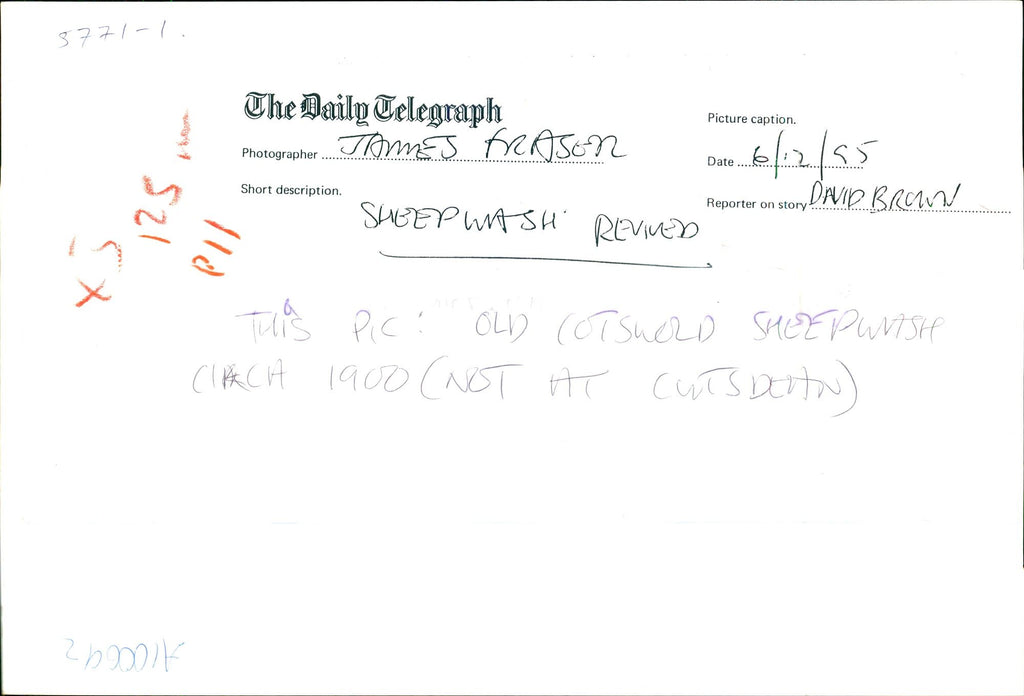 5771-1.
The Daily Telegraph
Picture caption.
Photographer JAMES FRASER
Date 6/12/95
Short description.
Reporter on story DAVID BROWN
SHEEPWASH REVIVED
125
P11
X5
THIS PIC: OLD COTSWOLD SHEEPWASH
CIRCA 1900 (NOT AT CUTSDEAN)